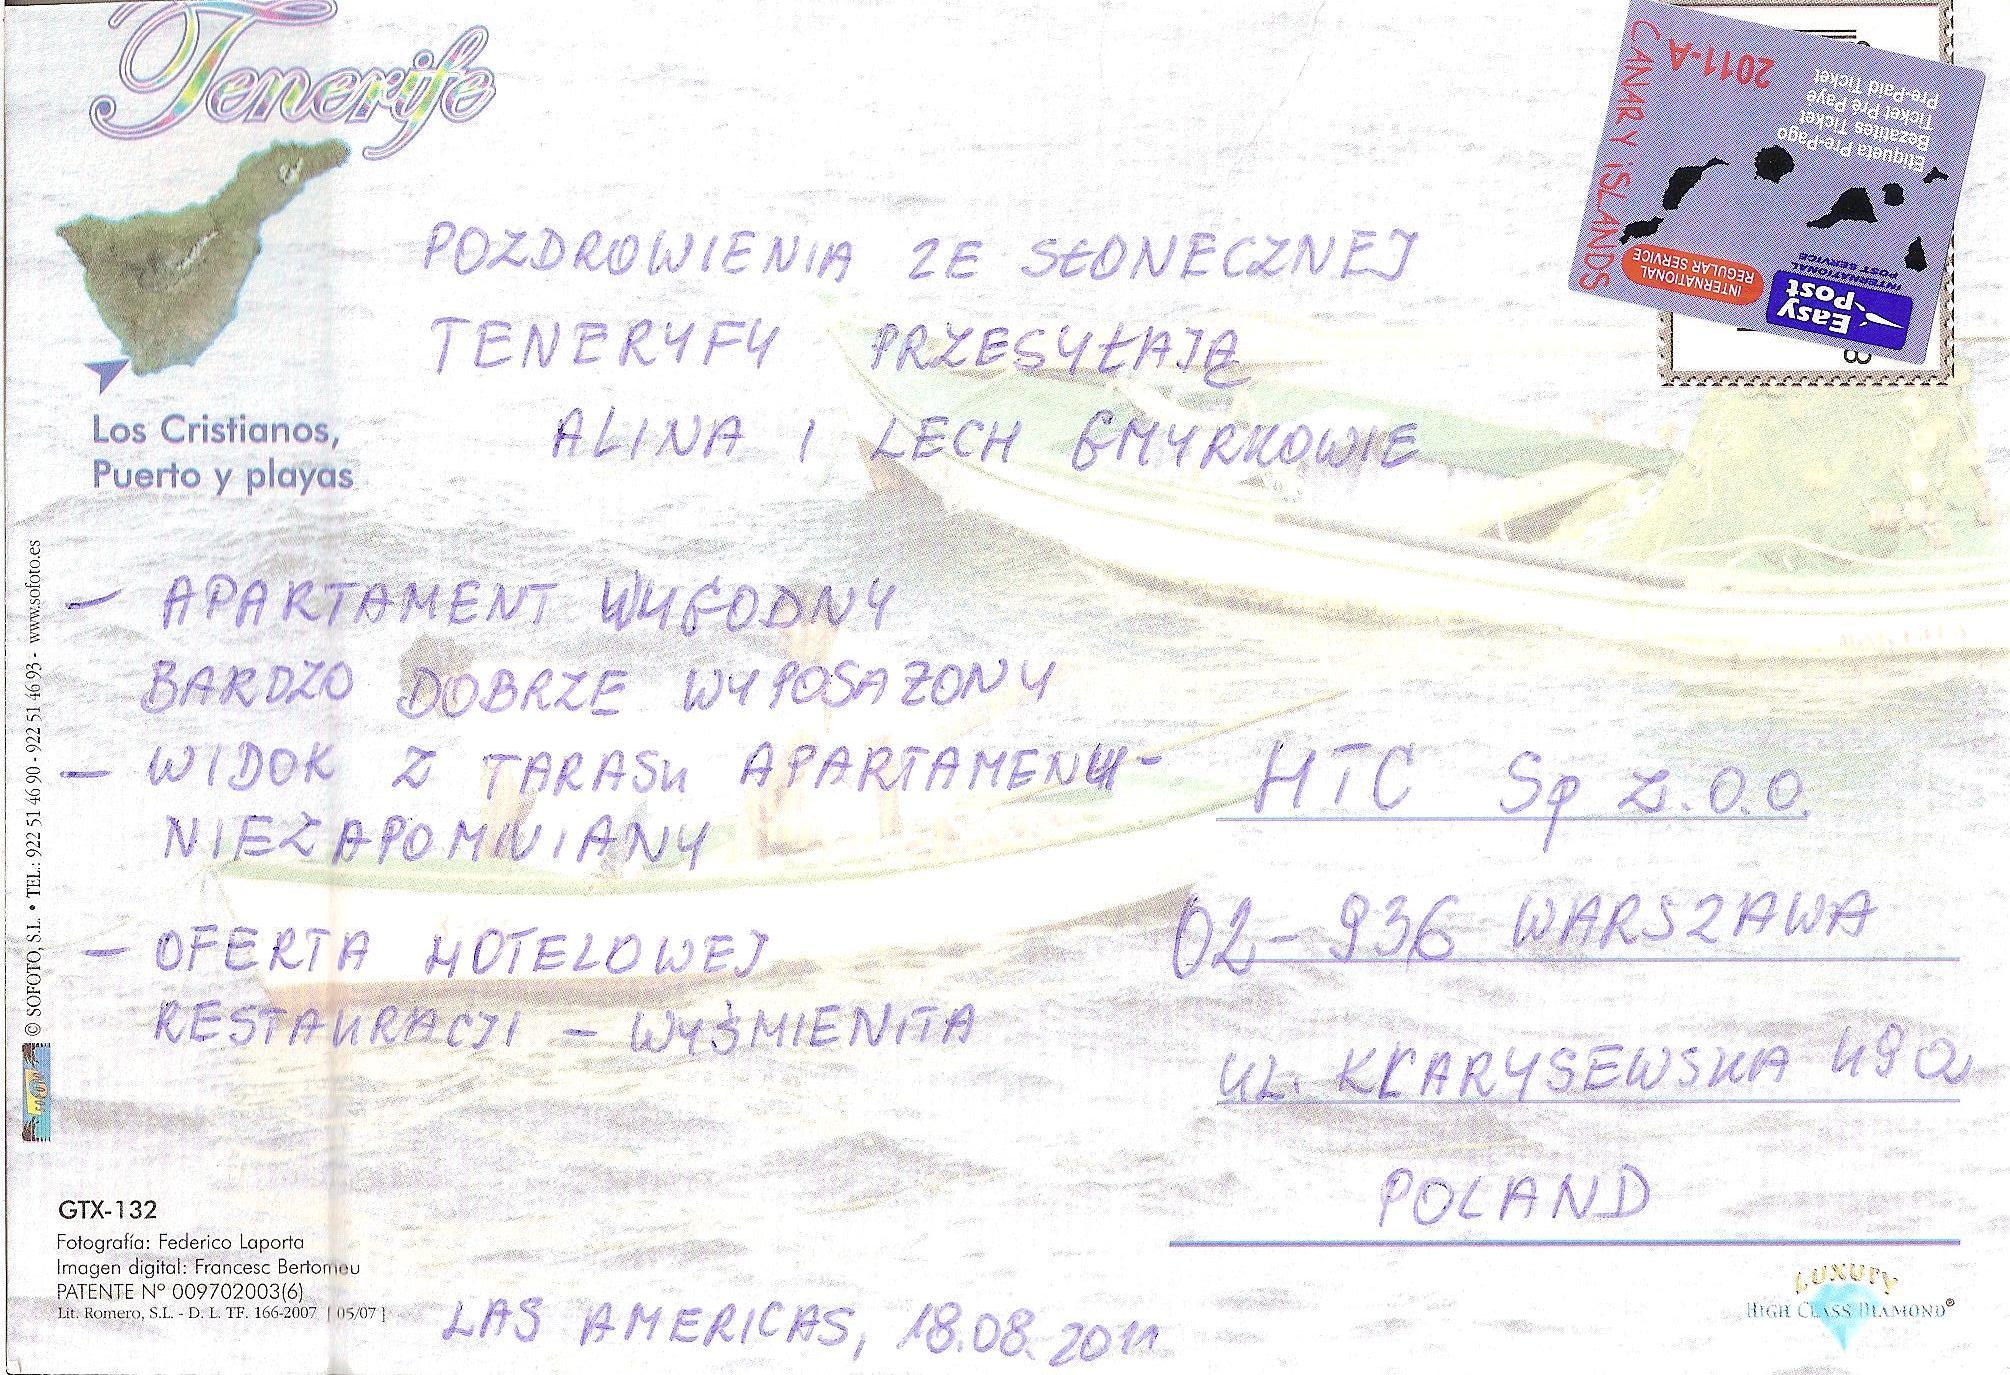 Tenerife
Los Cristianos,
Puerto y playas
CANARY ISLANDS
2011-A
Etiqueta Pre-Pago
Bezatltes Ticket
Ticket Pré Paye
Pre-Paid Ticket
INTERNATIONAL
REGULAR SERVICE
Easy
Post
INTERNATIONAL
POST SERVICE
POZDROWIENIA ZE SŁONECZNEJ
TENERYFY PRZESYŁAJĄ
ALINA I LECH GMYRKOWIE
- APARTAMENT WYGODNY
BARDZO DOBRZE WYPOSAZONY
- WIDOK Z TARASU APARTAMENU -
NIEZAPOMNIANY
- OFERTA HOTELOWEJ
RESTAURACJI - WYŚMIENITA
HTC Sp z.o.o.
02-936 WARSZAWA
UL. KLARYSEWSKA 49a
POLAND
LAS AMERICAS, 18.08.2011
© SOFOTO, S.L. • TEL.: 922 51 46 90 - 922 51 46 93 - www.sofoto.es
GTX-132
Fotografía: Federico Laporta
Imagen digital: Francesc Bertomeu
PATENTE Nº 009702003(6)
Lit. Romero, S.L. - D. L. TF. 166-2007 [ 05/07 ]
LUXURY
HIGH CLASS DIAMOND®